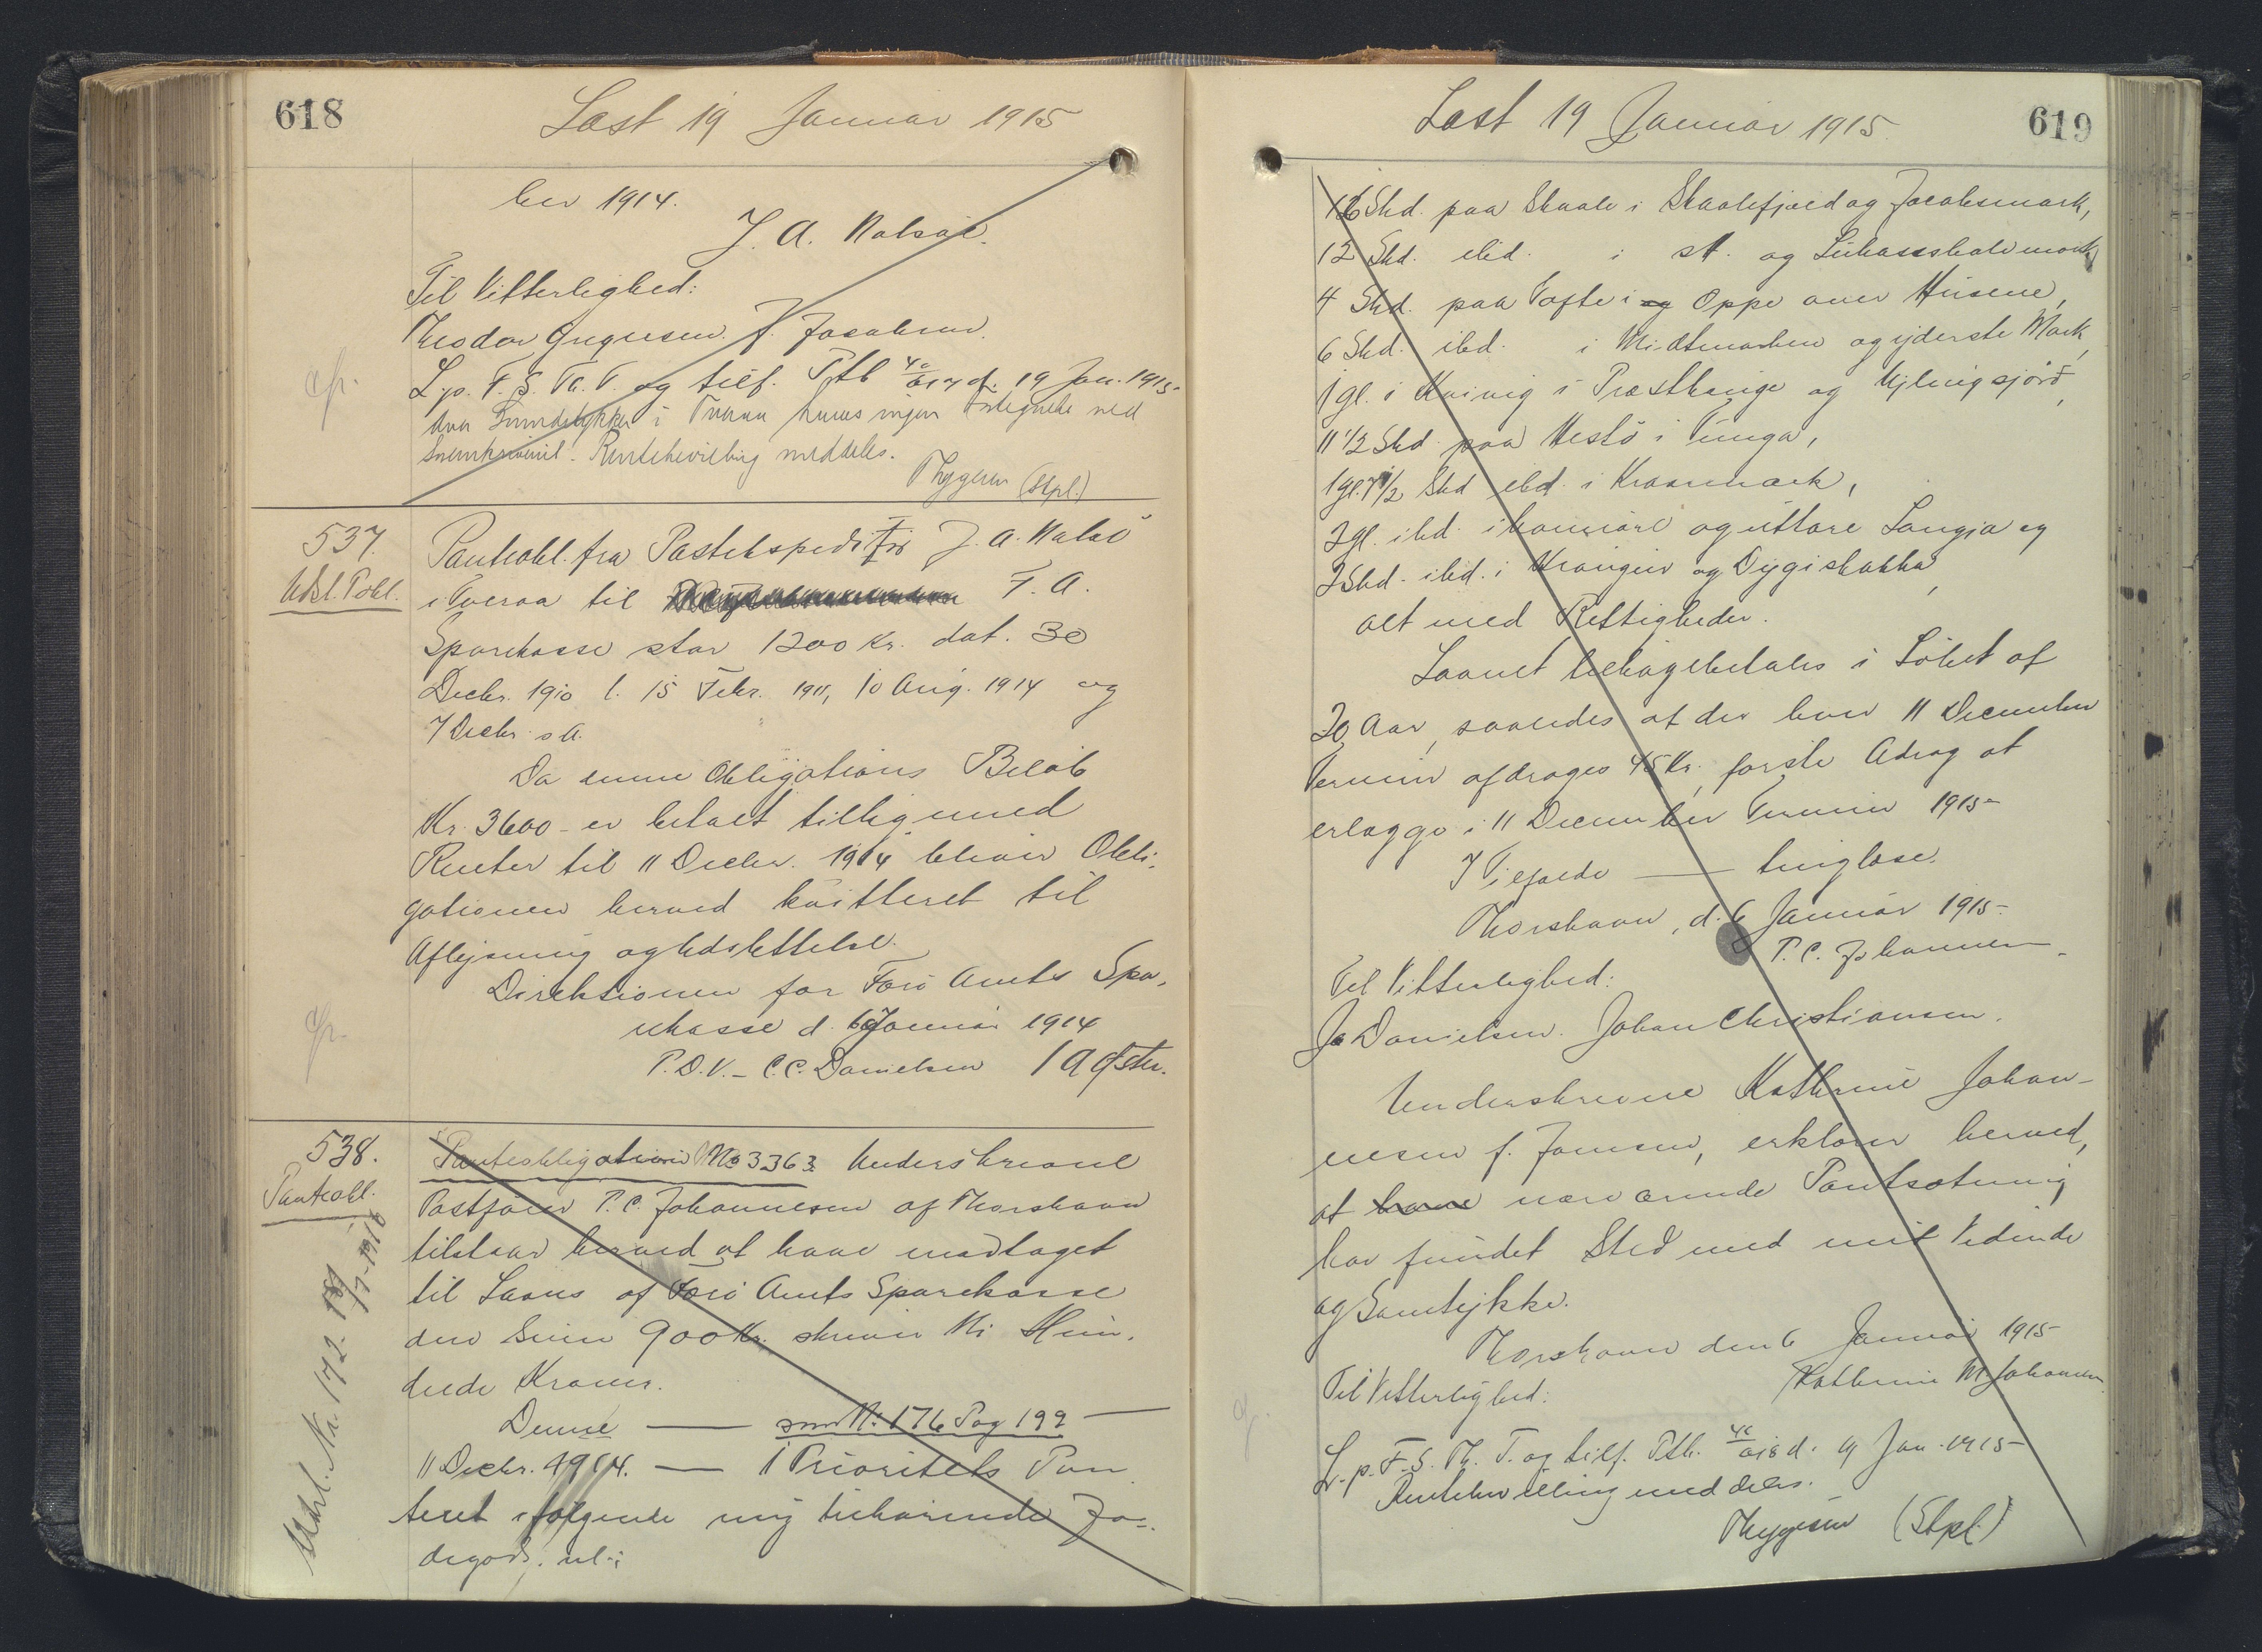 618
Læst 19 Januar 1915
ber 1914.
J. A. Nolsøe.
Til Vitterlighed:
Theodor Gregersen. J. Jacobsen.
cfr.
L. p. F. S. Th. T. og tilf. Ptb 40/217 d. 19 Jan. 1915.
Thygesen (Stpl.)
537.
Udsl. Pobl.
Panteobl. fra Postekspeditør J. A. Nolsö
i Tveraa til F. A.
Sparekasse stor 1200 Kr. dat. 30
Decbr. 1910 l. 15 Febr. 1911, 10 Aug. 1914 og
7 Decbr s. A.
Da denne Obligations Beløb
Kr. 3600 - er betalt tilligemed
Renter til 11 Decbr. 1914 bliver Obli-
gationen herved kvitteret til
Aflysning og Udslettelse.
Direktionen for Færø Amts Spa-
rekasse d. 6 Januar 1914
cfr.
P.D.V. - C.C. Danielsen
538.
Panteobl.
Udsl. No. 172
Panteobligation No 3363. Underskrevne
Postfører P. C. Johannesen af Thorshavn
tilstaar herved at have modtaget
til Laans af Færø Amts Sparekasse
den Sum 900 Kr. skriver Ni Hun-
drede Kroner.
Denne — som No 176 Pag 199 —
11 Decbr. 1914. — 1 Prioritets Pan-
teret i følgende mig tilhørende Jor-
degods. nl.:
619
Læst 19 Januar 1915
16 Skd. paa Skaale i Skaalefjæld og Jacobsmark,
12 Skd. ibd. i st. og Lukassskalemark
4 Skd. paa Tofte i og Oppe over Husene,
6 Skd. ibd. i Midtmarken og yderste Mark,
1 gl. i Kvivig i Præsthauge og
11 1/2 Skd. paa Vestö i Tunga,
1 gl. 7 1/2 Skd ibd. i Kraasmark,
2 gl. ibd. i og uttare Langja og
2 Skd. ibd. i Krongin og Dygiskakka,
alt med Rettigheder.
Laanet tilbagebetales i Löbet af
20 Aar, saaledes at der hver 11 December
Termin afdrages 45 Kr., første Adrag at
erlægge i 11 December Termin 1915-
I Tilfælde — tinglæse.
Thorshavn, d. 6 Januar 1915-
P. C. Johannesen.
Til Vitterlighed:
Jo Danielsen. Johan Christiansen.
Underskrevne Kathrine Johan-
nesen f. Joensen, erklærer herved,
at have nærværende Pantsætning
har fundet Sted med mit Vidende
og Samtykke.
Thorshavn den 6 Januar 1915-
Til Vitterlighed:
Kathrine M Johannesen
L. p. F. S. Th. T. og tilf. Ptb. 40/218 d. 19 Jan. 1915-
Rentebevilling meddeles.
Thygesen (Stpl.)